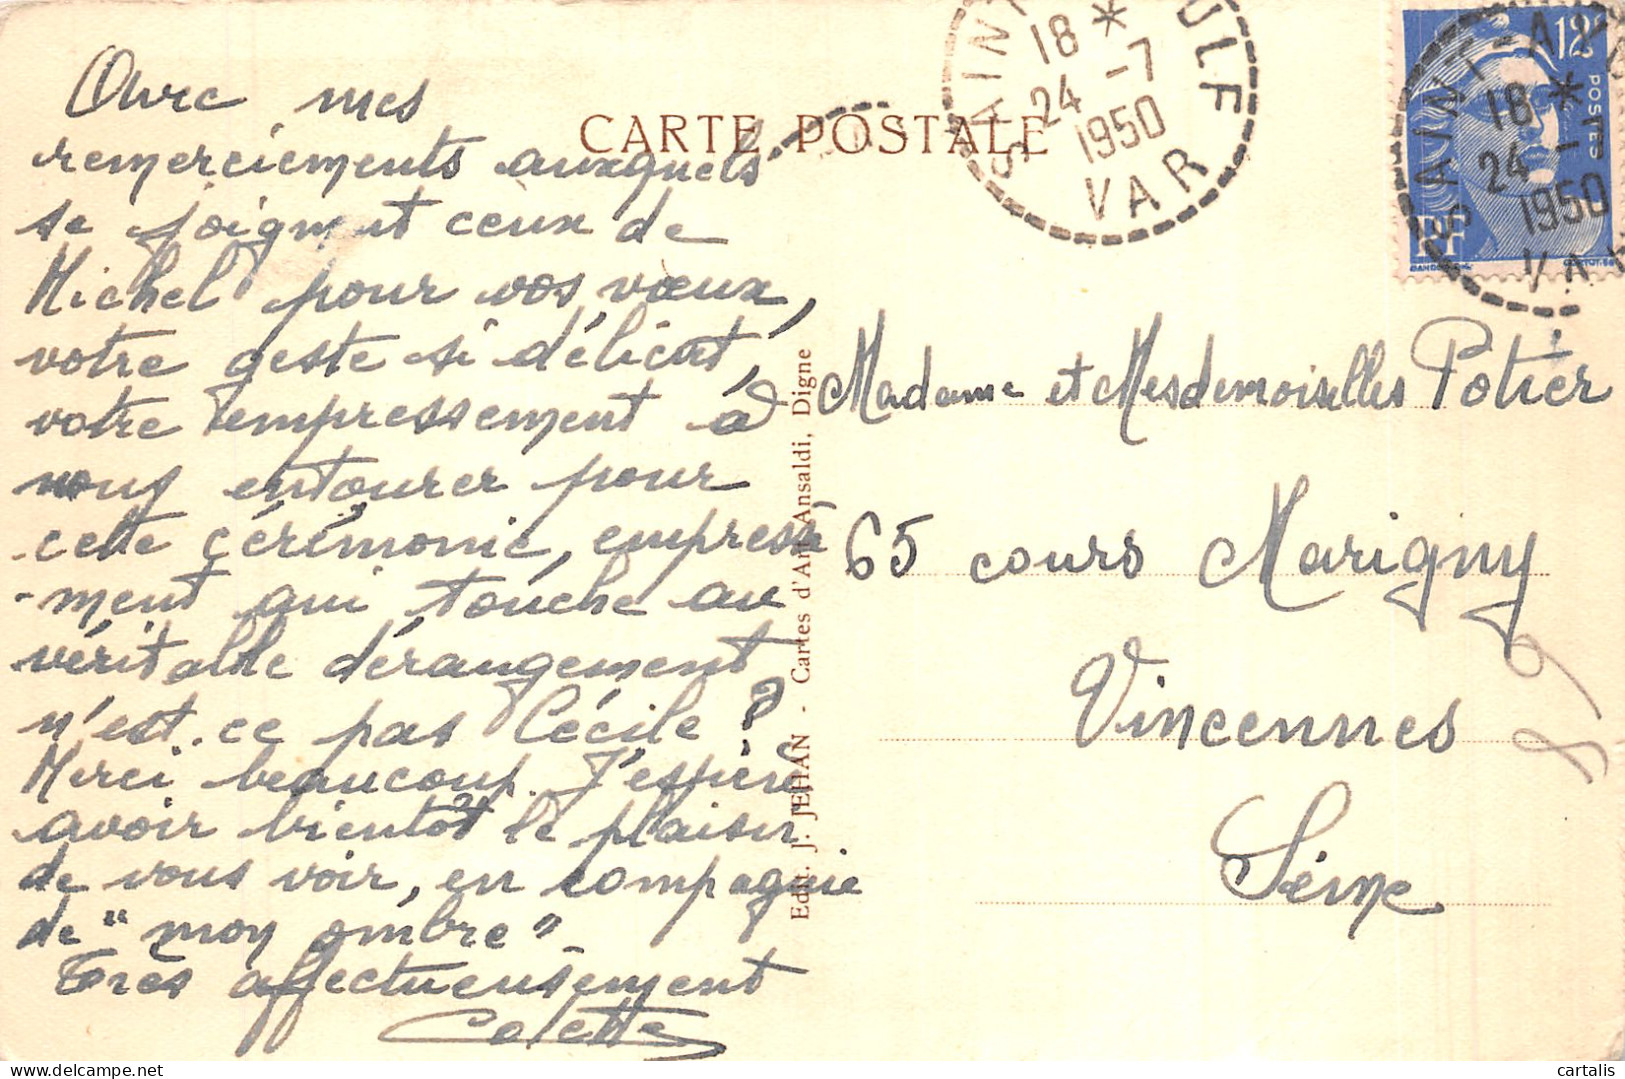 Avec mes
remerciements auxquels
se joignent ceux de
Michel pour vos vœux,
votre geste si délicat,
votre empressement à
nous entourer pour
cette cérémonie, empresse
-ment qui touche au
véritable dérangement
n'est-ce pas Cécile ?
Merci beaucoup. J'espère
avoir bientôt le plaisir
de vous voir, en compagnie
de "mon ombre"_
Très affectueusement
Colette
CARTE POSTALE
Edit. J. JEHAN - Cartes d'Art Ansaldi, Digne
SAINT ULF
18 *
24 -7
1950
VAR
12F
POSTES
RF
SAINT-AY
18 *
24 -7
1950
VAR
Madame et Mesdemoiselles Potier
65 cours Marigny
Vincennes
Seine
delcampe.net
cartalis